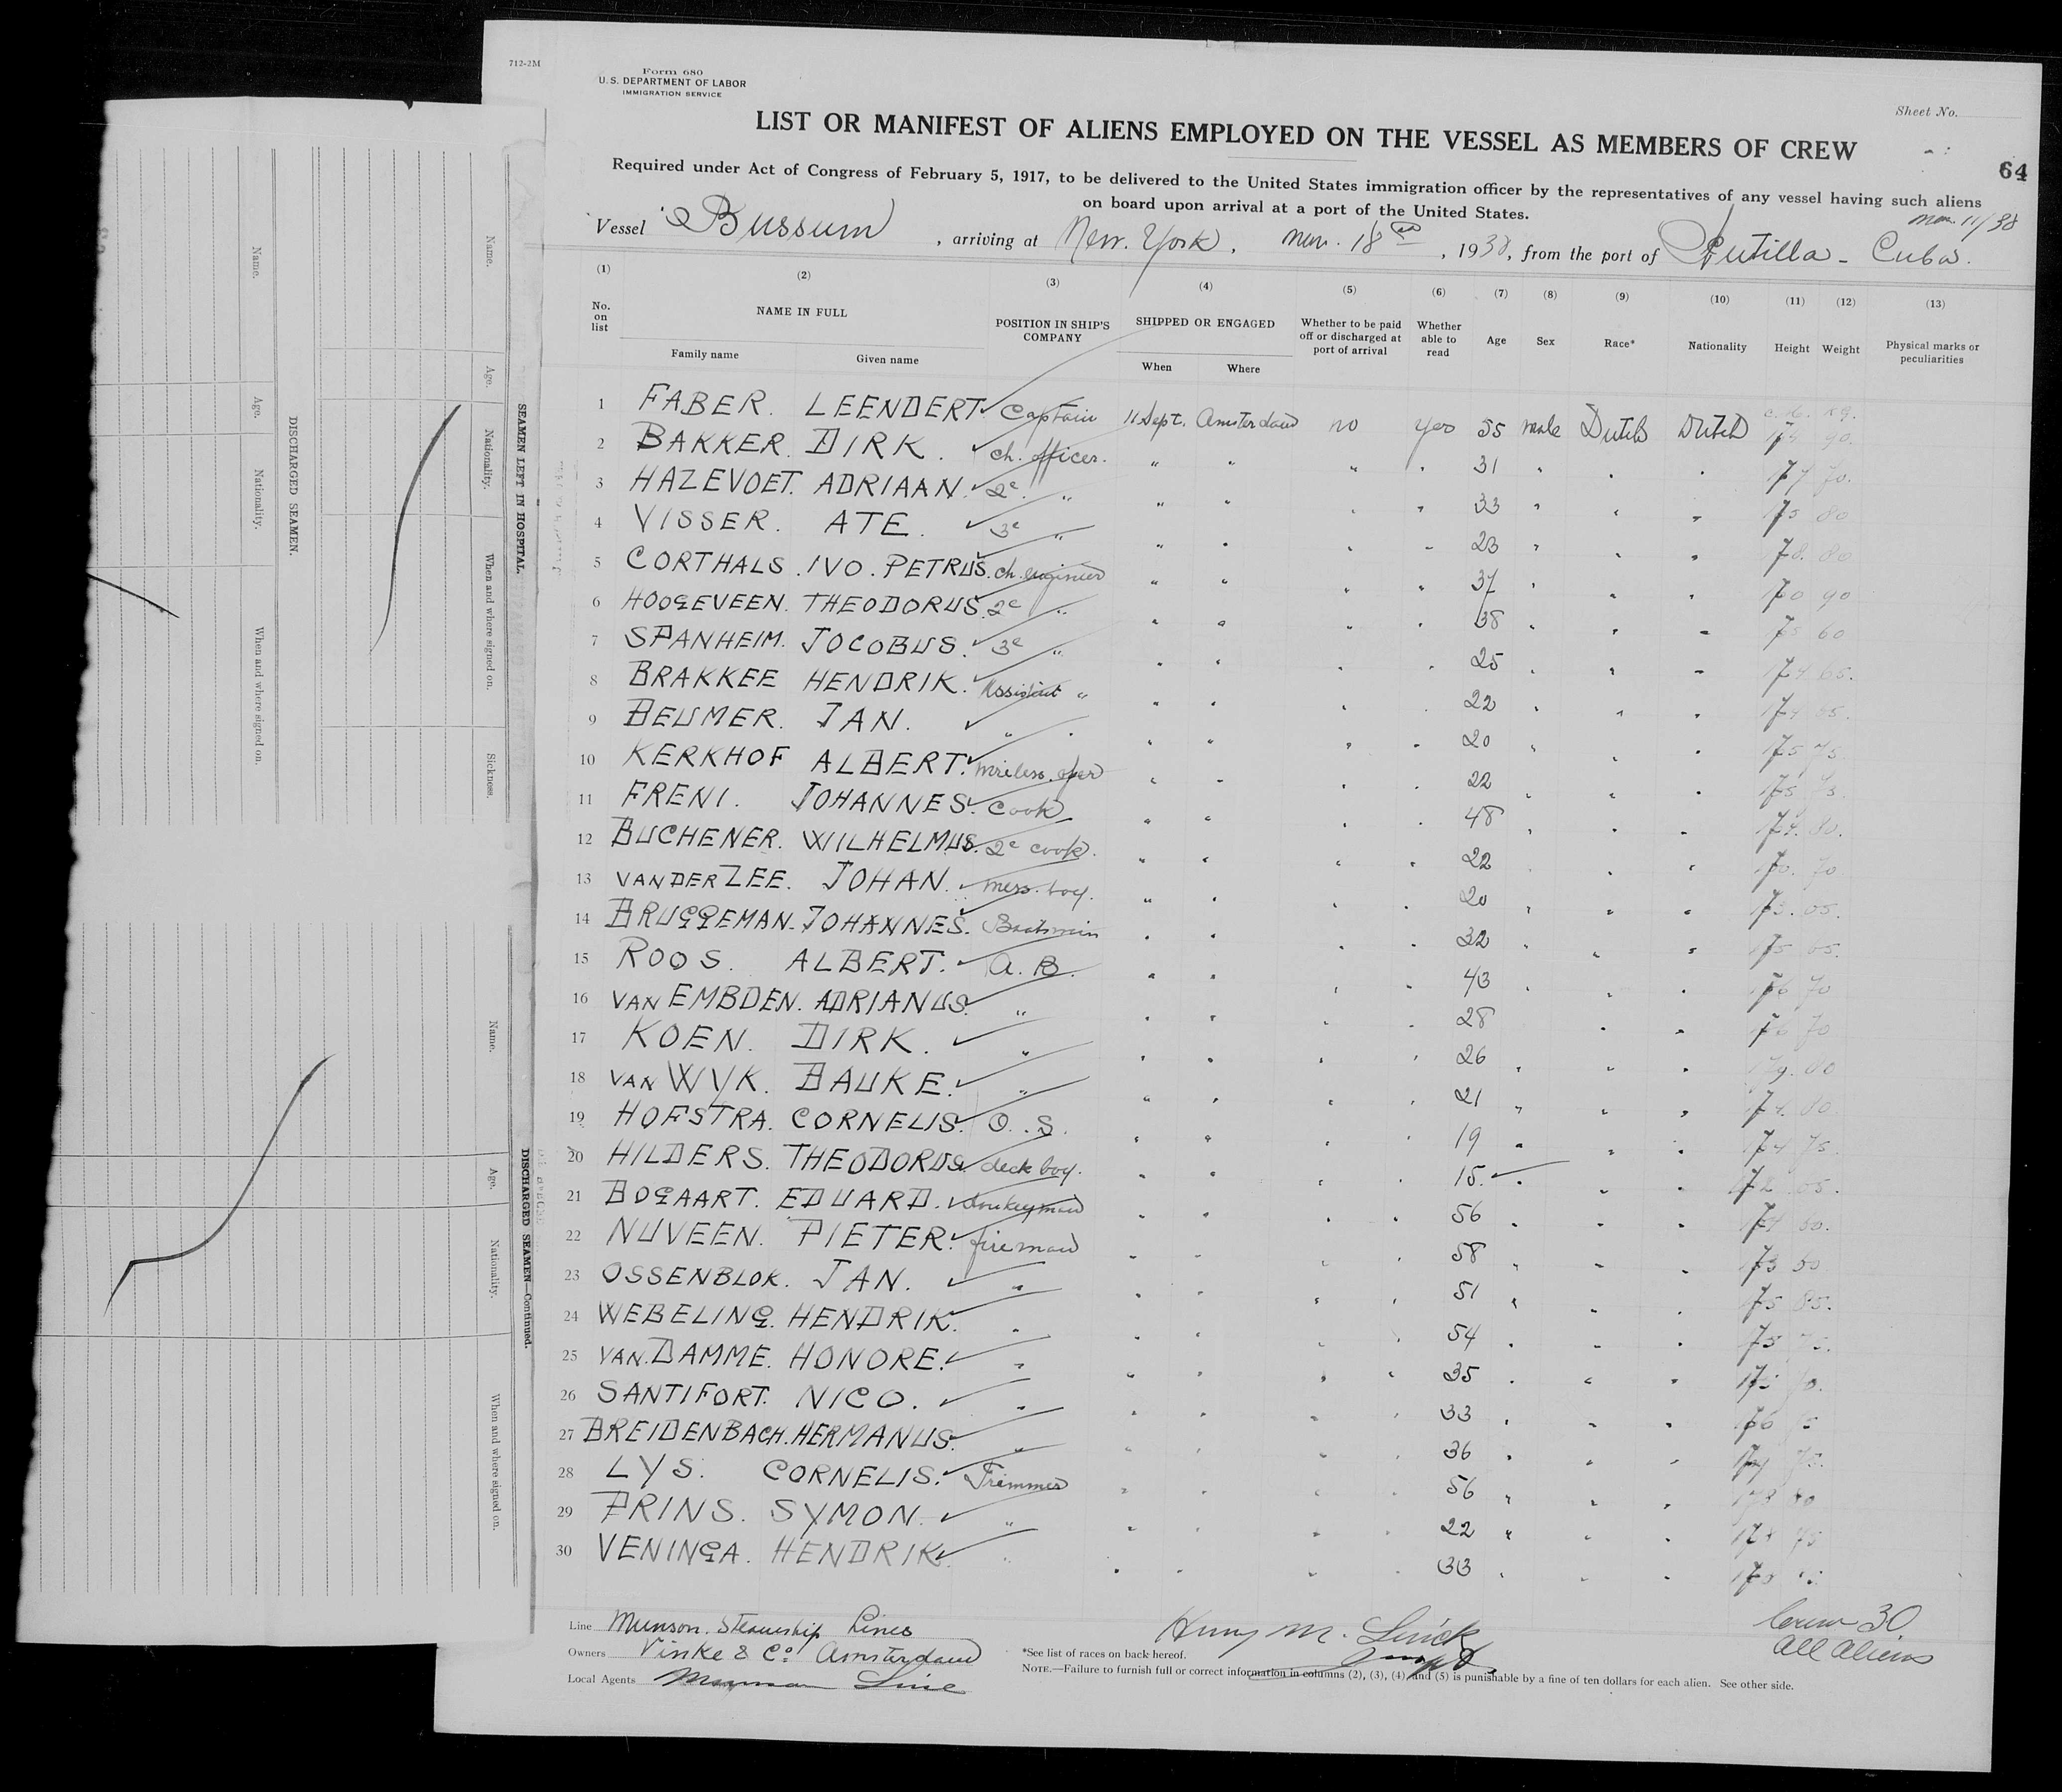 712-2M
Form 680
U. S. DEPARTMENT OF LABOR
IMMIGRATION SERVICE
Sheet No.
LIST OR MANIFEST OF ALIENS EMPLOYED ON THE VESSEL AS MEMBERS OF CREW
64
Required under Act of Congress of February 5, 1917, to be delivered to the United States immigration officer by the representatives of any vessel having such aliens
on board upon arrival at a port of the United States.
Vessel Bussum, arriving at New. York, 18, 1938, from the port of Cuba.
11/38
(1) (2) (3) (4) (5) (6) (7) (8) (9) (10) (11) (12) (13)
No. on list NAME IN FULL POSITION IN SHIP'S COMPANY SHIPPED OR ENGAGED Whether to be paid off or discharged at port of arrival Whether able to read Age Sex Race* Nationality Height Weight Physical marks or peculiarities
Family name Given name When Where
1 FABER. LEENDERT Captain 11 Sept. Amsterdam no yes 55 male Dutch Dutch 90.
2 BAKKER. DIRK. ch. officer. " " " " 31 " " " 177 70.
3 HAZEVOET. ADRIAAN. 2e " " " " " 33 " " " 175 80
4 VISSER. ATE. 3e " " " " " 23 " " " 178. 80
5 CORTHALS. IVO. PETRUS. ch. engineer " " " " 37 " " " 170 90
6 HOOGEVEEN. THEODORUS. 2e " " " " " 38 " " " 175 60
7 SPANHEIM. JOCOBUS. 3e " " " " " 25 " " " 174 65.
8 BRAKKEE HENDRIK. Assistent " " " " " 22 " " " 174
9 BEUMER. JAN. " " " " " " 20 " " " 175 75.
10 KERKHOF ALBERT. Wireless. oper " " " " 22 " " " 175
11 FRENI. JOHANNES. Cook " " " " 48 " " " 80.
12 BUCHENER. WILHELMUS. 2e cook. " " " " 22 " " " 170. 70
13 VAN DER ZEE. JOHAN. mess. boy. " " " " 20 " " " 173.
14 BRUGGEMAN. JOHANNES. Boatsman " " " " 32 " " " 175
15 ROOS. ALBERT. A. B. " " " " 43 " " " 176 70
16 VAN EMBDEN. ADRIANUS. " " " " " 28 " " 70
17 KOEN. DIRK. " " " " " 26 " " " 179.
18 VAN WYK. BAUKE. " " " " " 21 " " " 174. 80.
19 HOFSTRA. CORNELIS. O. S. " " " " 19 " " " 174 75.
20 HILDERS. THEODORUS. deck boy. " " " " 15. " " " 172
21 BOGAART. EDUARD. donkeyman " " " " 56 " " " 174 60.
22 NUVEEN. PIETER. fireman " " " " 58 " " " 173 50
23 OSSENBLOK. JAN. " " " " " 51 " " " 175 85.
24 WEBELING. HENDRIK. " " " " " 54 " " " 175
25 VAN. DAMME. HONORE. " " " " " 35 " " "
26 SANTIFORT. NICO. " " " " " 33 " " " 176
27 BREIDENBACH. HERMANUS. " " " " " 36 " " "
28 LYS. CORNELIS. Trimmer " " " " 56 " " " 178 80
29 PRINS. SYMON. " " " " " 22 " " " 178 75
30 VENINGA. HENDRIK. " " " " " 33 " " " 178
Line Munson. Steamship Lines
Owners Vinke & Co. Amsterdam
Local Agents Munson Line
Henry M.
*See list of races on back hereof.
NOTE.—Failure to furnish full or correct information in columns (2), (3), (4) and (5) is punishable by a fine of ten dollars for each alien. See other side.
Crew 30
All Aliens
SEAMEN LEFT IN HOSPITAL.
Name. Age. Nationality. When and where signed on. Sickness.
DISCHARGED SEAMEN.
Name. Age. Nationality. When and where signed on.
DISCHARGED SEAMEN—Continued.
Name. Age. Nationality. When and where signed on.